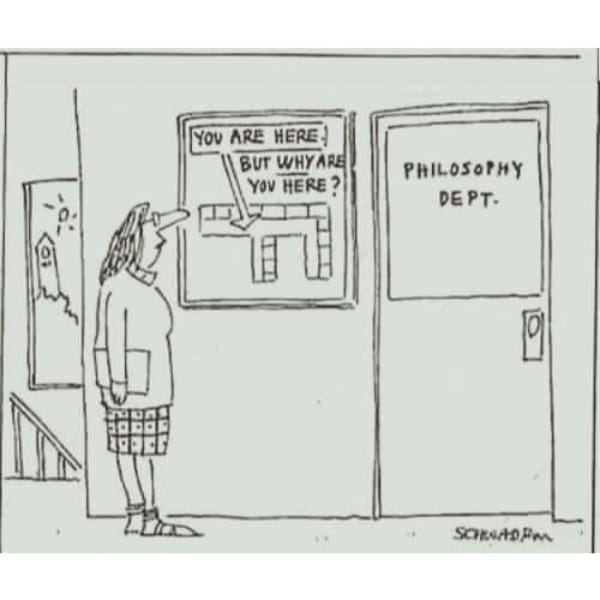 YOU ARE HERE.
BUT WHY ARE
YOU HERE?
PHILOSOPHY
DEPT.